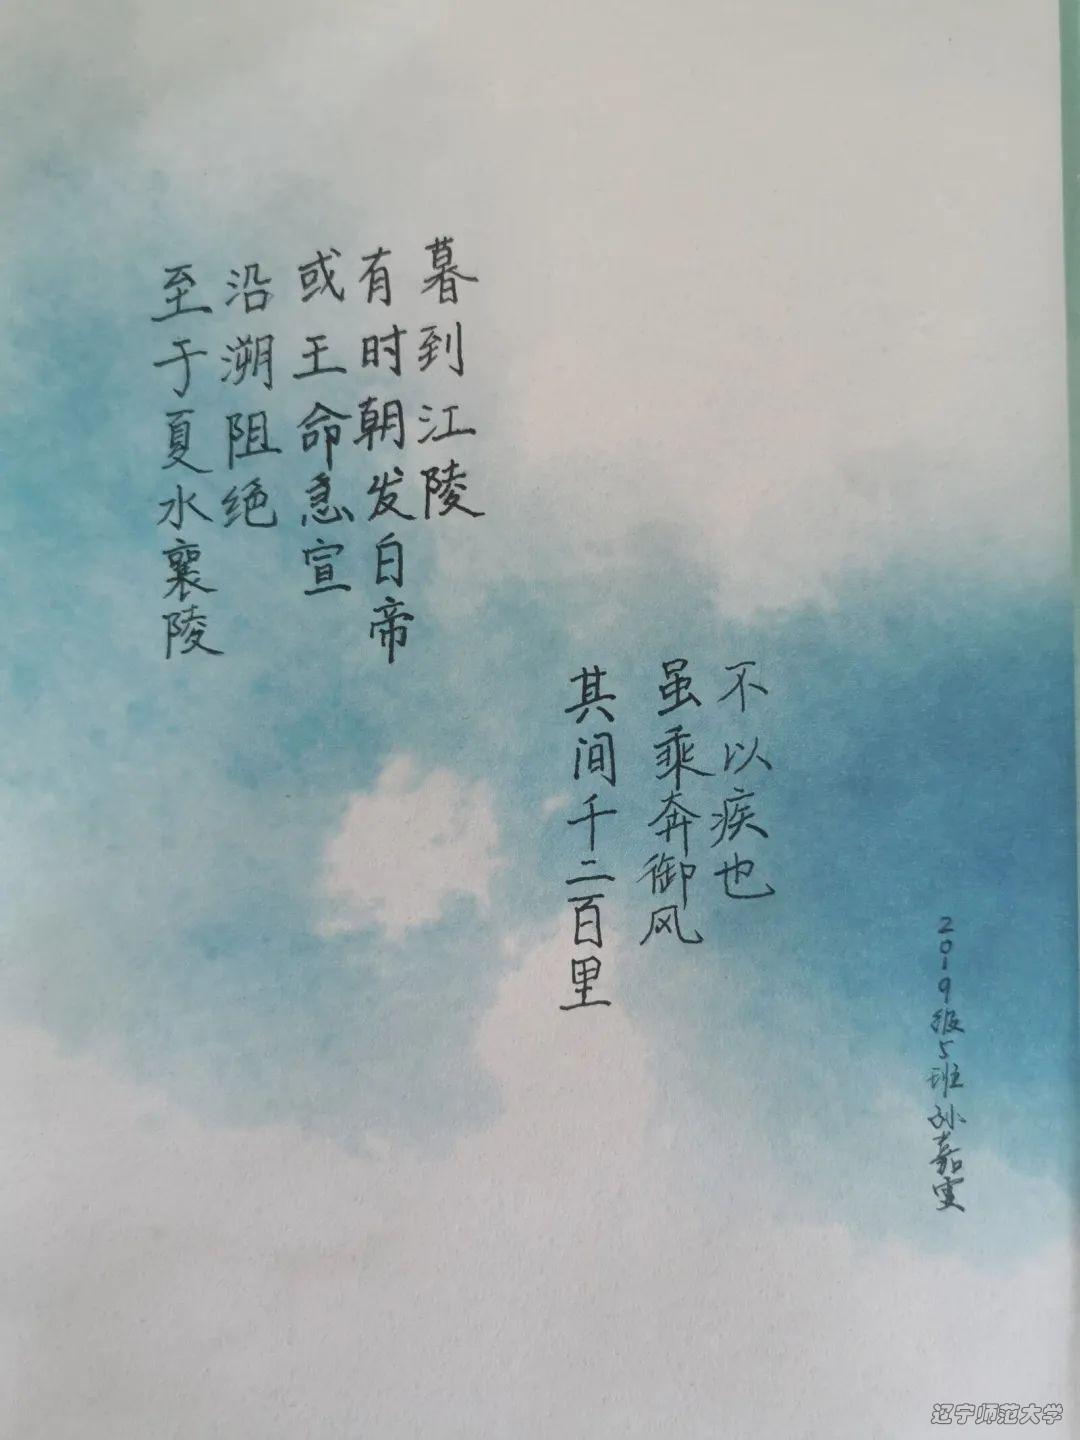 至于夏水襄陵
沿溯阻绝
或王命急宣
有时朝发白帝
暮到江陵
其间千二百里
虽乘奔御风
不以疾也
2019级5班孙嘉雯
辽宁师范大学